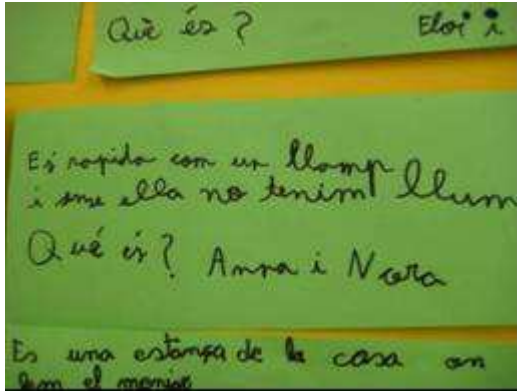 Què és? Eloi i
Es rapida com un llamp
i sense ella no tenim llum
Què és? Anna i Nora
Es una estança de la casa on
fem el menjar